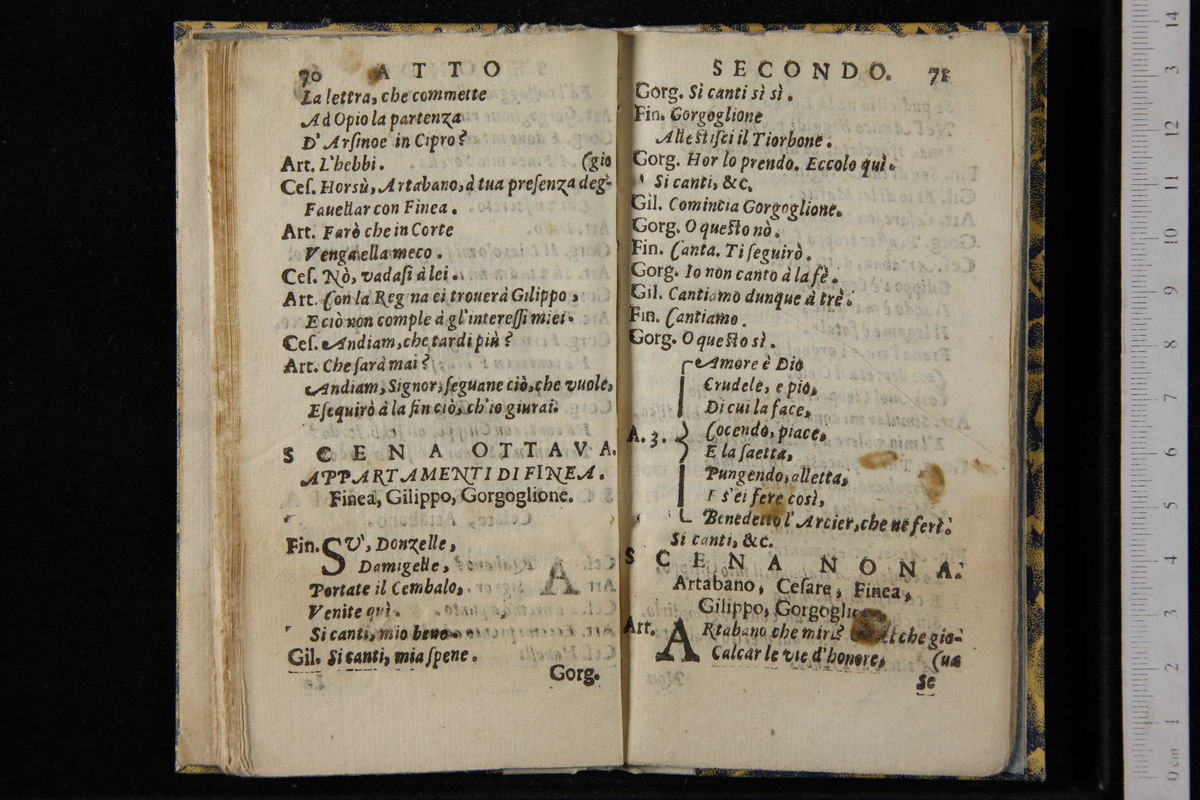 70 ATTO
La lettra, che commette
Ad Opio la partenza
D'Arsinoe in Cipro?
Art. L'hebbi. (gio
Ces. Horsù, Artabano, à tua presenza deg-
Fauellar con Finea.
Art. Farò che in Corte
Venga ella meco.
Ces. Nò, vadasi à lei.
Art. Con la Reg na ei trouerà Gilippo,
E ciò non comple à gl'interessi miei.
Ces. Andiam, che tardi più?
Art. Che sarà mai?
Andiam, Signor, seguane ciò, che vuole,
Esequirò à la fin ciò, ch'io giurai.
SCENA OTTAVA.
APPARTAMENTI DI FINEA.
Finea, Gilippo, Gorgoglione.
Fin. SV', Donzelle,
Damigelle,
Portate il Cembalo,
Venite quì.
Si canti, mio bene
Gil. Si canti, mia spene.
Gorg.
SECONDO. 71
Gorg. Si canti sì sì.
Fin. Gorgoglione
Allestisci il Tiorbone.
Gorg. Hor lo prendo. Eccolo quì.
Si canti, &c.
Gil. Comincia Gorgoglione.
Gorg. O questo nò.
Fin. Canta. Ti seguirò.
Gorg. Io non canto à la fè.
Gil. Cantiamo dunque à trè.
Fin. Cantiamo.
Gorg. O questo sì.
Amore è Dio
Crudele, e pio,
Di cui la face,
A. 3. Cocendo, piace,
E la saetta,
Pungendo, alletta,
E s'ei fere così,
Benedetto l'Arcier, che ne ferì.
Si canti, &c.
SCENA NONA.
Artabano, Cesare, Finea,
Gilippo, Gorgoglio
Art. ARtabano che miri? che gio-
Calcar le vie d'honore, (ua
Se